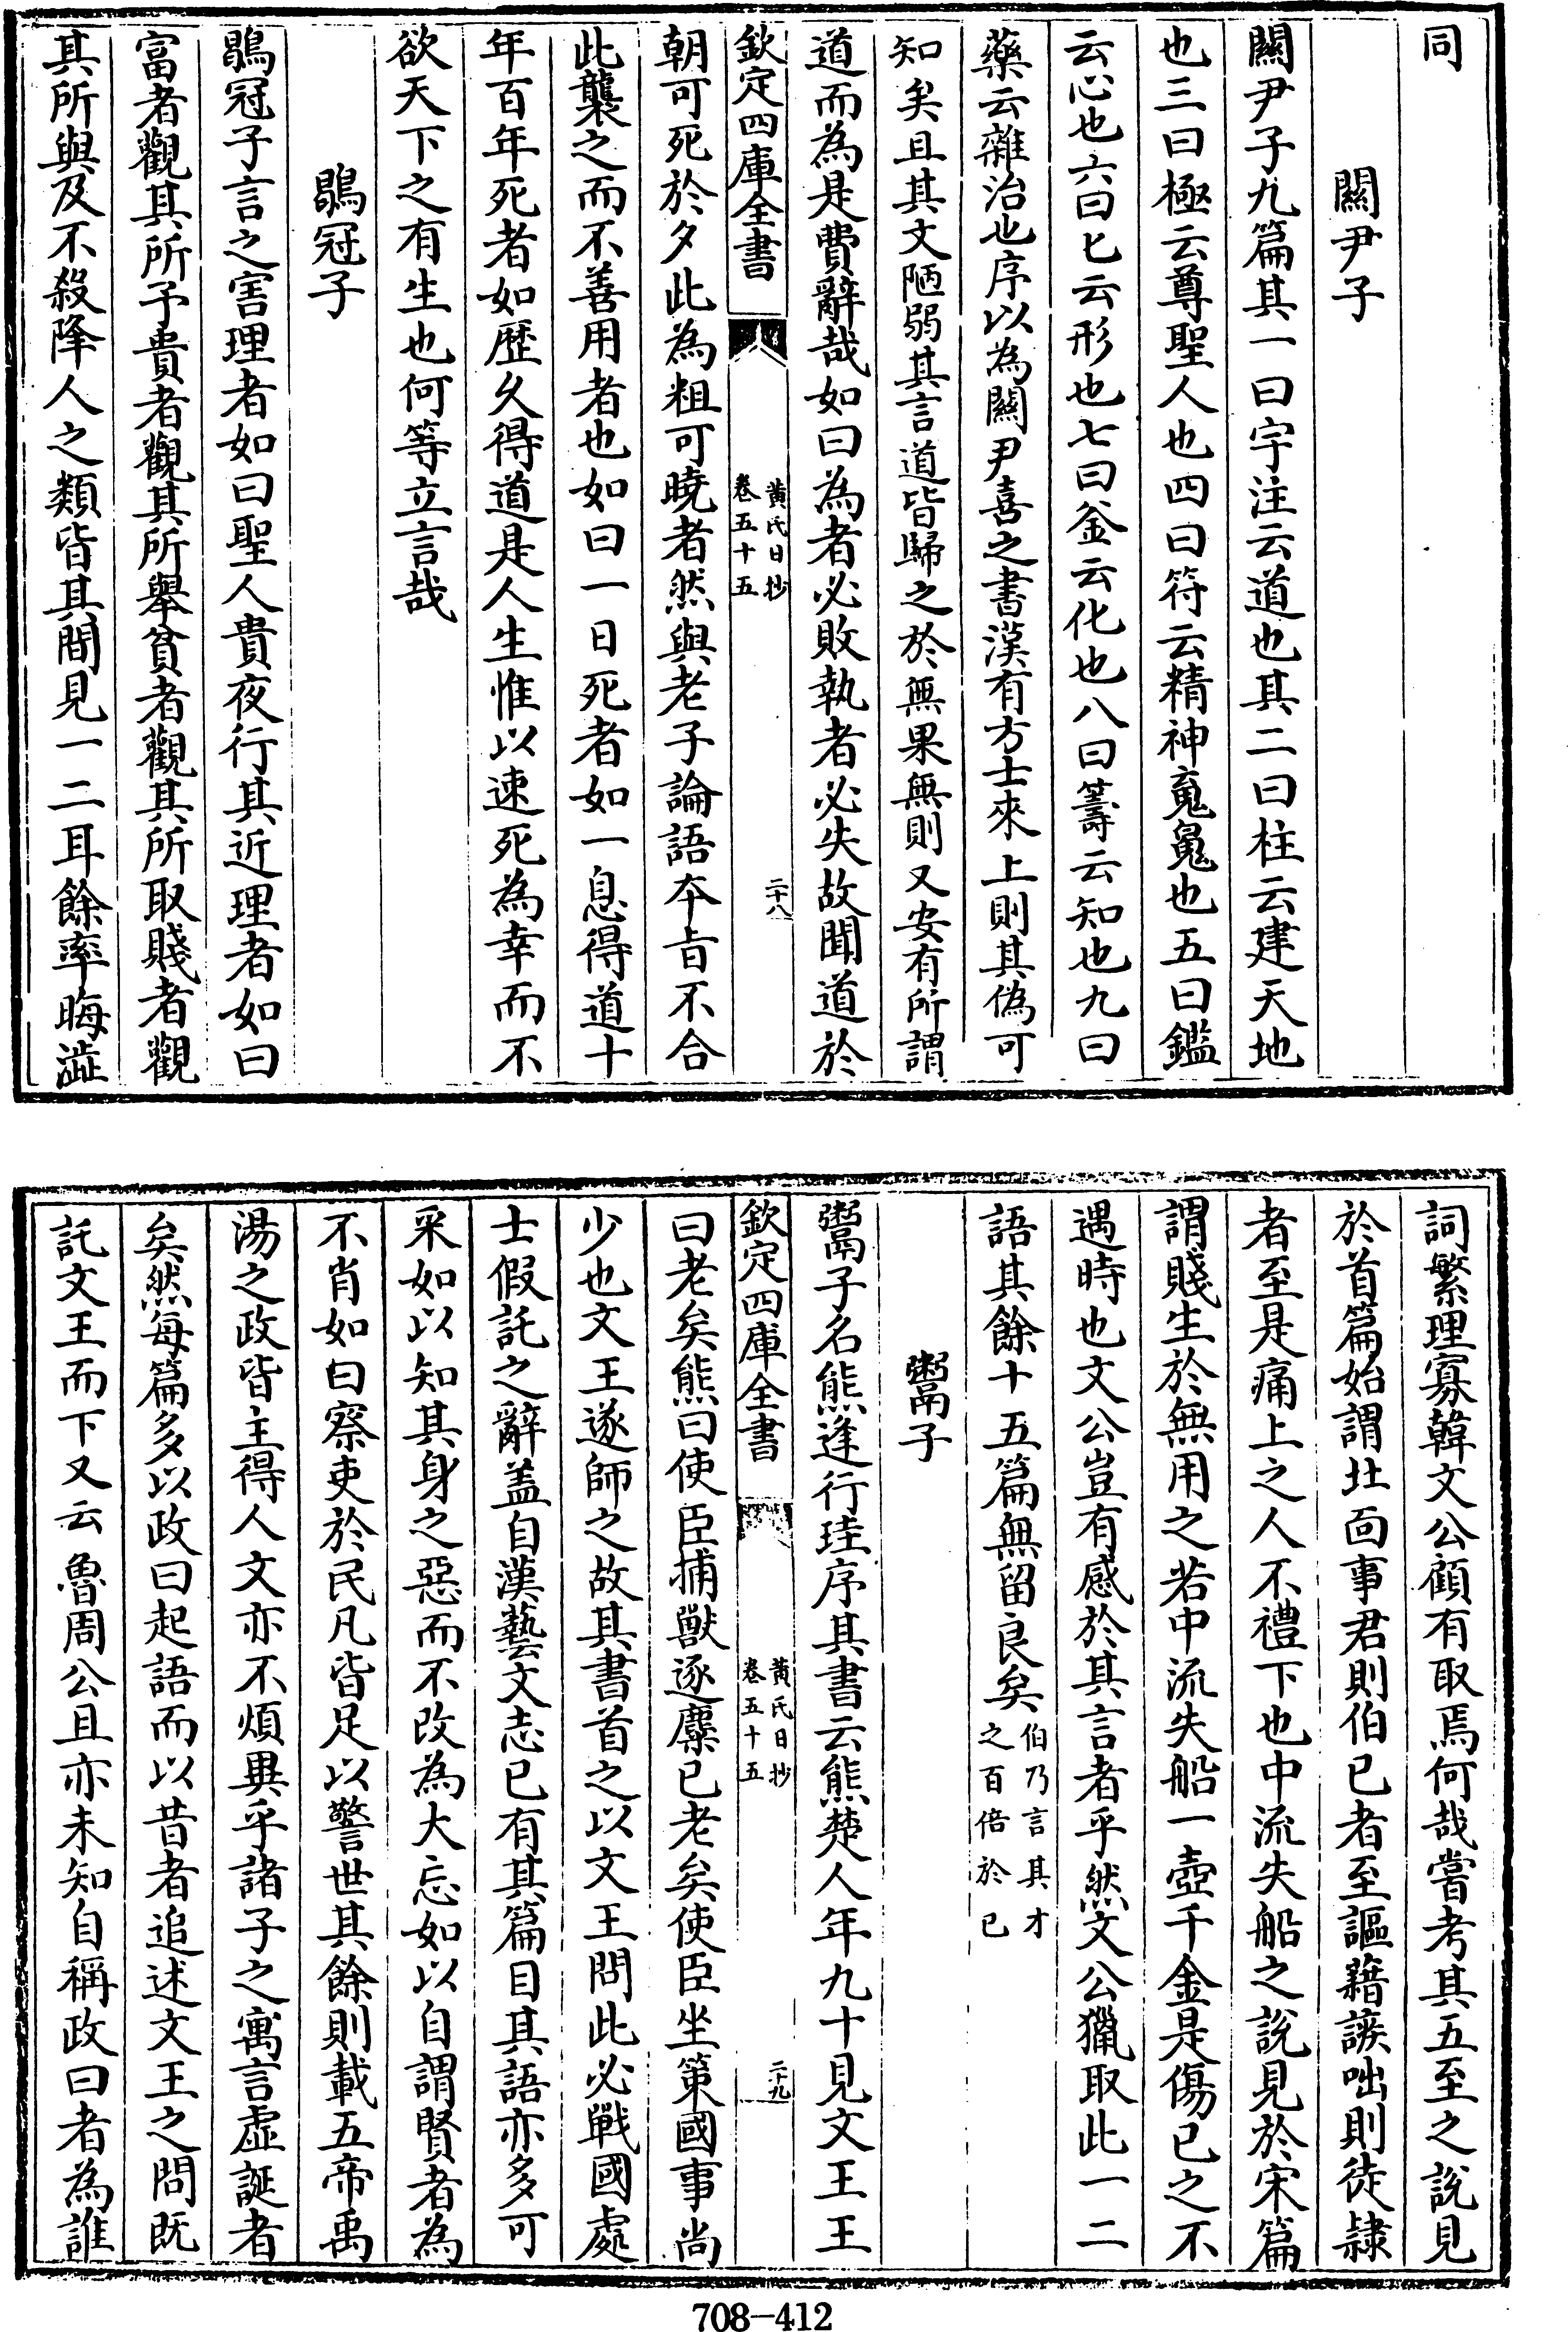 同
關尹子
關尹子九篇其一曰宇注云道也其二曰柱云建天地
也三曰極云尊聖人也四曰符云精神䰟魄也五曰鑑
云心也六曰匕云形也七曰釜云化也八曰籌云知也九曰
藥云雜治也序以為關尹喜之書漢有方士來上則其偽可
知矣且其文陋弱其言道皆歸之於無果無則又安有所謂
道而為是費辭哉如曰為者必敗執者必失故聞道於
欽定四庫全書
黃氏日抄
卷五十五
二十八
朝可死於夕此為粗可曉者然與老子論語本旨不合
此襲之而不善用者也如曰一日死者如一息得道十
年百年死者如歷久得道是人生惟以速死為幸而不
欲天下之有生也何等立言哉
鶡冠子
鶡冠子言之害理者如曰聖人貴夜行其近理者如曰
富者觀其所予貴者觀其所舉貧者觀其所取賤者觀
其所與及不殺降人之類皆其間見一二耳餘率晦澁
詞繁理寡韓文公顧有取焉何哉嘗考其五至之說見
於首篇始謂北面事君則伯已者至謳藉䛊咄則徒隷
者至是痛上之人不禮下也中流失船之說見於宋篇
謂賤生於無用之若中流失船一壺千金是傷已之不
遇時也文公豈有感於其言者乎然文公獵取此一二
語其餘十五篇無留良矣
伯乃言其才
之百倍於已
鬻子
鬻子名熊逢行珪序其書云熊楚人年九十見文王王
欽定四庫全書
黃氏日抄
卷五十五
二十九
曰老矣熊曰使臣捕獸逐麋已老矣使臣坐策國事尚
少也文王遂師之故其書首之以文王問此必戰國處
士假託之辭盖自漢藝文志已有其篇目其語亦多可
采如以知其身之惡而不改為大忘如以自謂賢者為
不肖如曰察吏於民凡皆足以警世其餘則載五帝禹
湯之政皆主得人文亦不煩異乎諸子之寓言虛誕者
矣然每篇多以政曰起語而以昔者追述文王之問既
託文王而下又云魯周公且亦未知自稱政曰者為誰
708-412